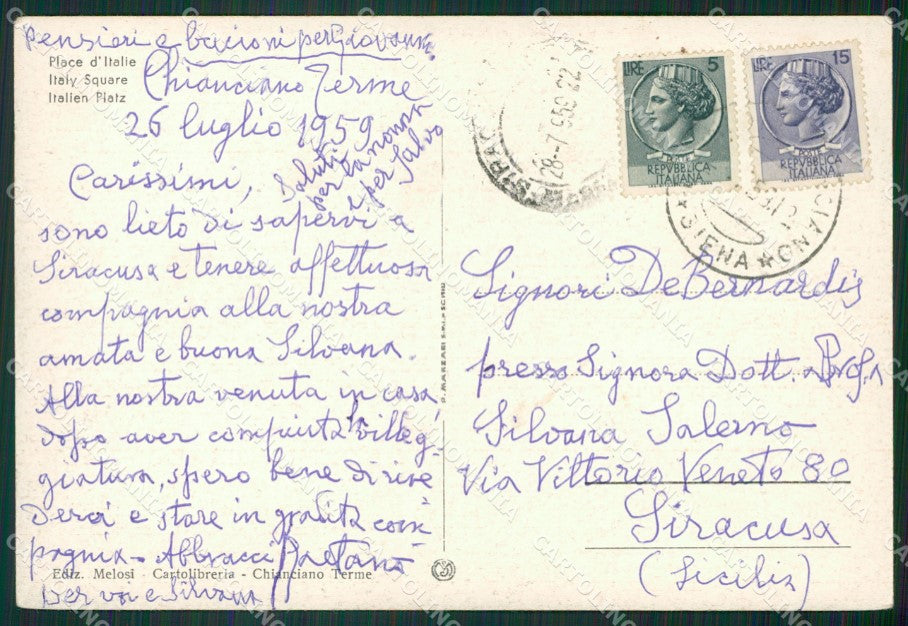 Pensieri e bacioni per Giovanni.
Place d'Italie
Italy Square
Italien Platz
Chianciano Terme
26 luglio 1959
Saluti
per la nonna
e per Salvo
Carissimi,
sono lieto di sapervi a
Siracusa e tenere affettuosa
compagnia alla nostra
amata e buona Silvana.
Alla nostra venuta in casa
dopo aver compiuta la villeg
giatura, spero bene di rive
derci e stare in gradita com
pagnia - Abbracci Gaetano
per voi e Silvana
Ediz. Melosi - Cartolibreria - Chianciano Terme
LIRE 5
POSTE
REPVBBLICA
ITALIANA
LIRE 15
POSTE
REPVBBLICA
ITALIANA
SIENA
Signori De Bernardis
presso Signora Dott. Prof.
Silvana Salerno
Via Vittorio Veneto 80
Siracusa
(Sicilia)
CARTOLINOMANIA